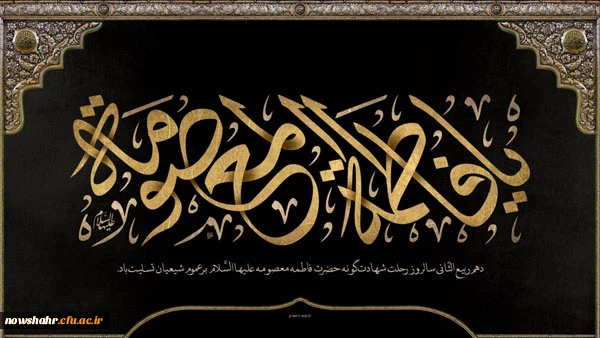 یا فاطمة المعصومة
علیها السلام
دهم ربیع الثانی سالروز رحلت شهادت‌گونه حضرت فاطمه معصومه علیها السَّلام بر عموم شیعیان تسلیت باد.
nowshahr.cfu.ac.ir